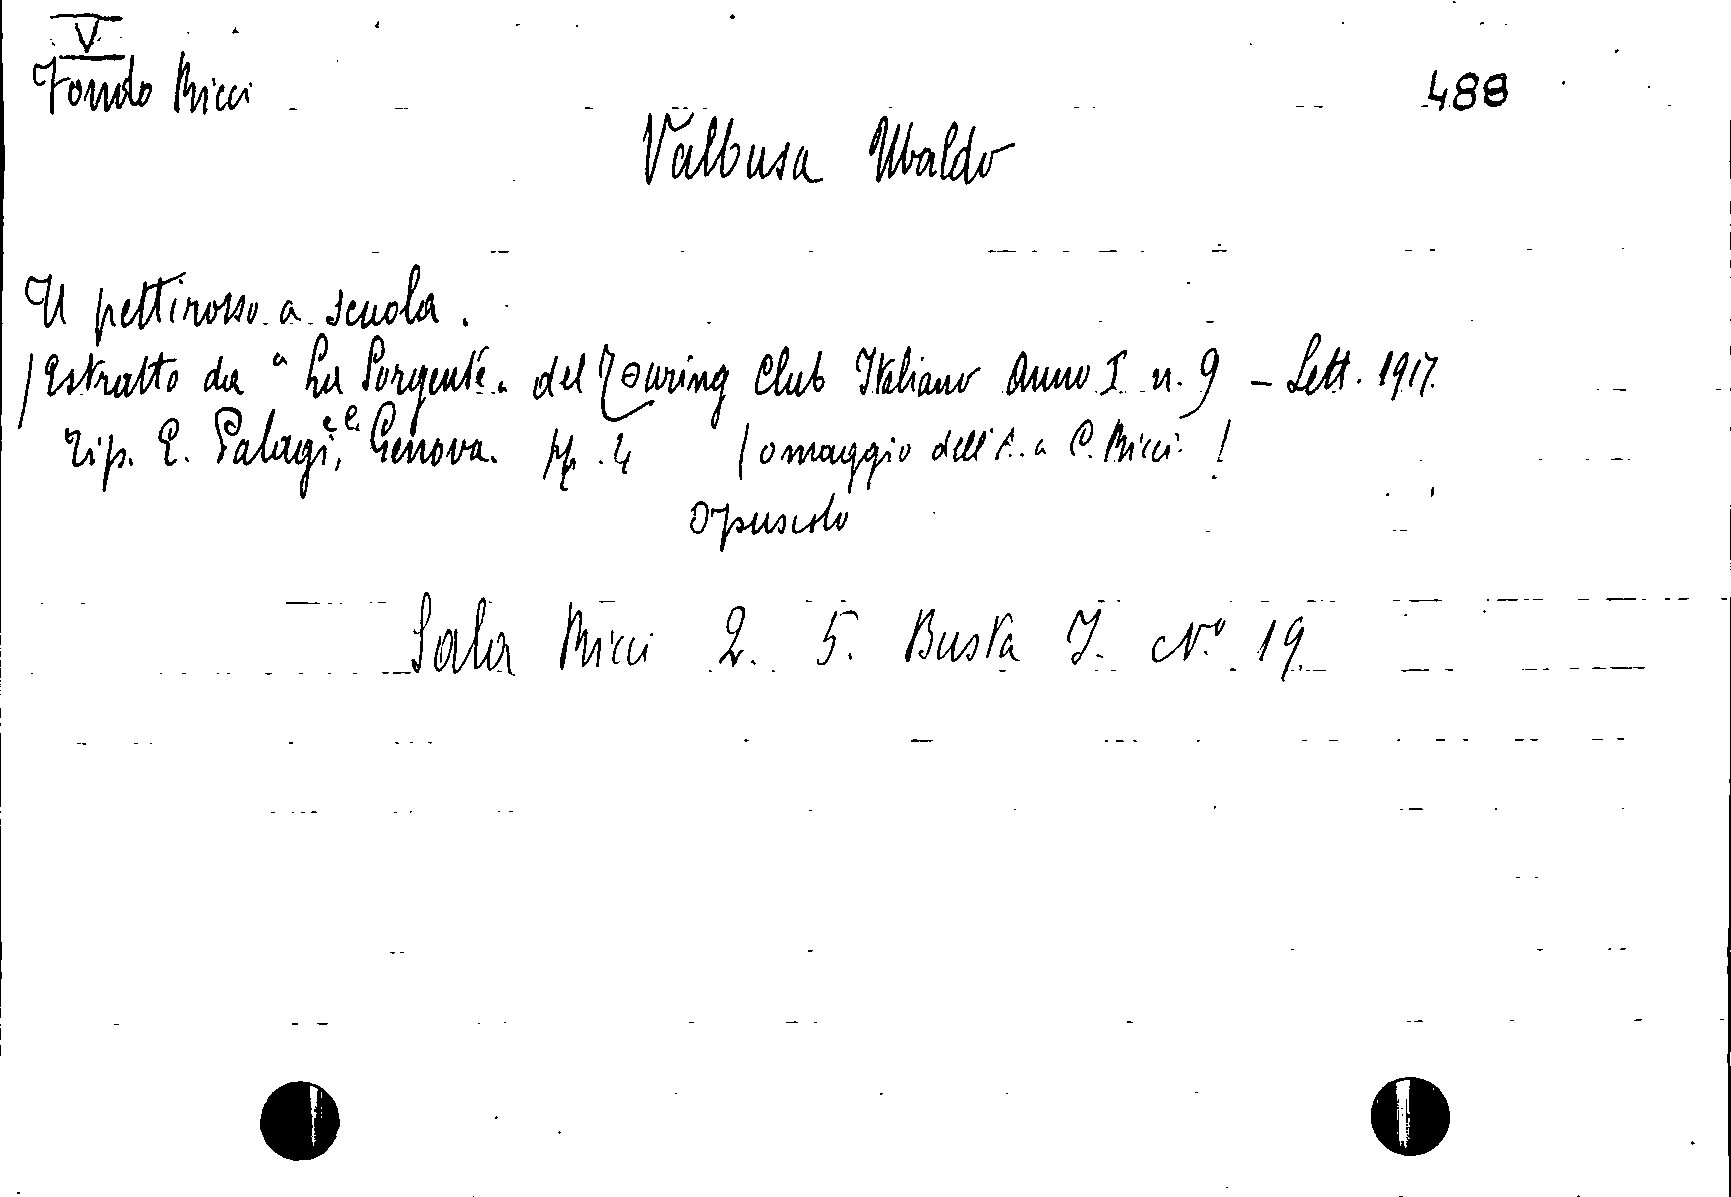 V
Fondo Ricci
488
Valbusa Ubaldo
Il pettirosso a scuola.
(Estratto da "La Sorgente" del Touring Club Italiano Anno I n. 9 - Sett. 1917.
Tip. E. Palagi, e C. Genova. pp. 4 (omaggio dell'A. a C. Ricci.)
opuscolo
Sala Ricci 2. 5. Busta I. N.° 19